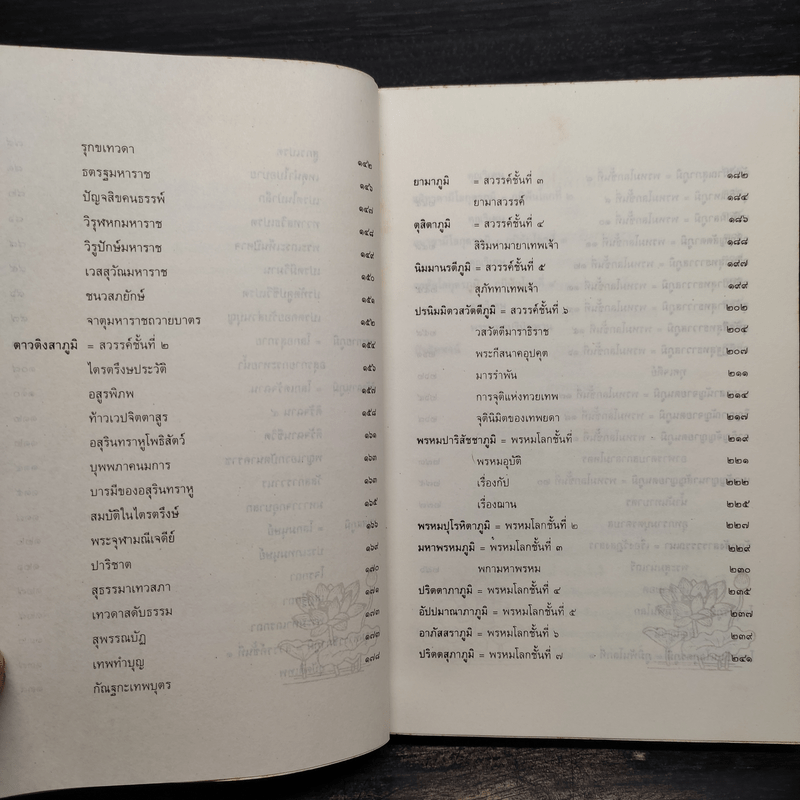 รุกขเทวดา ๑๔๒
ธตรฐมหาราช ๑๔๖
ปัญจสิขคนธรรพ์ ๑๔๗
วิรุฬหกมหาราช ๑๔๘
วิรูปักษ์มหาราช ๑๔๙
เวสสุวัณมหาราช ๑๕๐
ชนวสภยักษ์ ๑๕๑
จาตุมหาราชถวายบาตร ๑๕๒
ตาวติงสาภูมิ = สวรรค์ชั้นที่ ๒ ๑๕๔
ไตรตรึงษประวัติ ๑๕๖
อสูรพิภพ ๑๕๗
ท้าวเวปจิตตาสูร ๑๕๘
อสุรินทราหูโพธิสัตว์ ๑๖๑
บุพพภาคนมการ ๑๖๓
บารมีของอสุรินทราหู ๑๖๓
สมบัติในไตรตรึงษ์ ๑๖๕
พระจุฬามณีเจดีย์ ๑๖๖
ปาริชาต ๑๖๙
สุธรรมาเทวสภา ๑๗๐
เทวดาสดับธรรม ๑๗๑
สุพรรณบัฏ ๑๗๓
เทพทำบุญ ๑๗๓
กัณฐกะเทพบุตร ๑๗๘
ยามาภูมิ = สวรรค์ชั้นที่ ๓ ๑๘๒
ยามาสวรรค์ ๑๘๔
ตุสิตาภูมิ = สวรรค์ชั้นที่ ๔ ๑๘๖
สิริมหามายาเทพเจ้า ๑๘๘
นิมมานรดีภูมิ = สวรรค์ชั้นที่ ๕ ๑๙๗
สุภัททาเทพเจ้า ๑๙๙
ปรนิมมิตวสวัตตีภูมิ = สวรรค์ชั้นที่ ๖ ๒๐๒
วสวัตตีมาราธิราช ๒๐๔
พระกีสนาคอุปคุต ๒๐๗
มารรำพัน ๒๑๑
การจุติแห่งทวยเทพ ๒๑๔
จุตินิมิตของเทพยดา ๒๑๗
พรหมปาริสัชชาภูมิ = พรหมโลกชั้นที่ ๒๑๙
พรหมอุบัติ ๒๒๑
เรื่องกัป ๒๒๒
เรื่องฌาน ๒๒๕
พรหมปุโรหิตาภูมิ = พรหมโลกชั้นที่ ๒ ๒๒๗
มหาพรหมภูมิ = พรหมโลกชั้นที่ ๓ ๒๒๙
พกามหาพรหม ๒๓๐
ปริตตาภาภูมิ = พรหมโลกชั้นที่ ๔ ๒๓๕
อัปปมาณาภาภูมิ = พรหมโลกชั้นที่ ๕ ๒๓๗
อาภัสสราภูมิ = พรหมโลกชั้นที่ ๖ ๒๓๙
ปริตตสุภาภูมิ = พรหมโลกชั้นที่ ๗ ๒๔๑